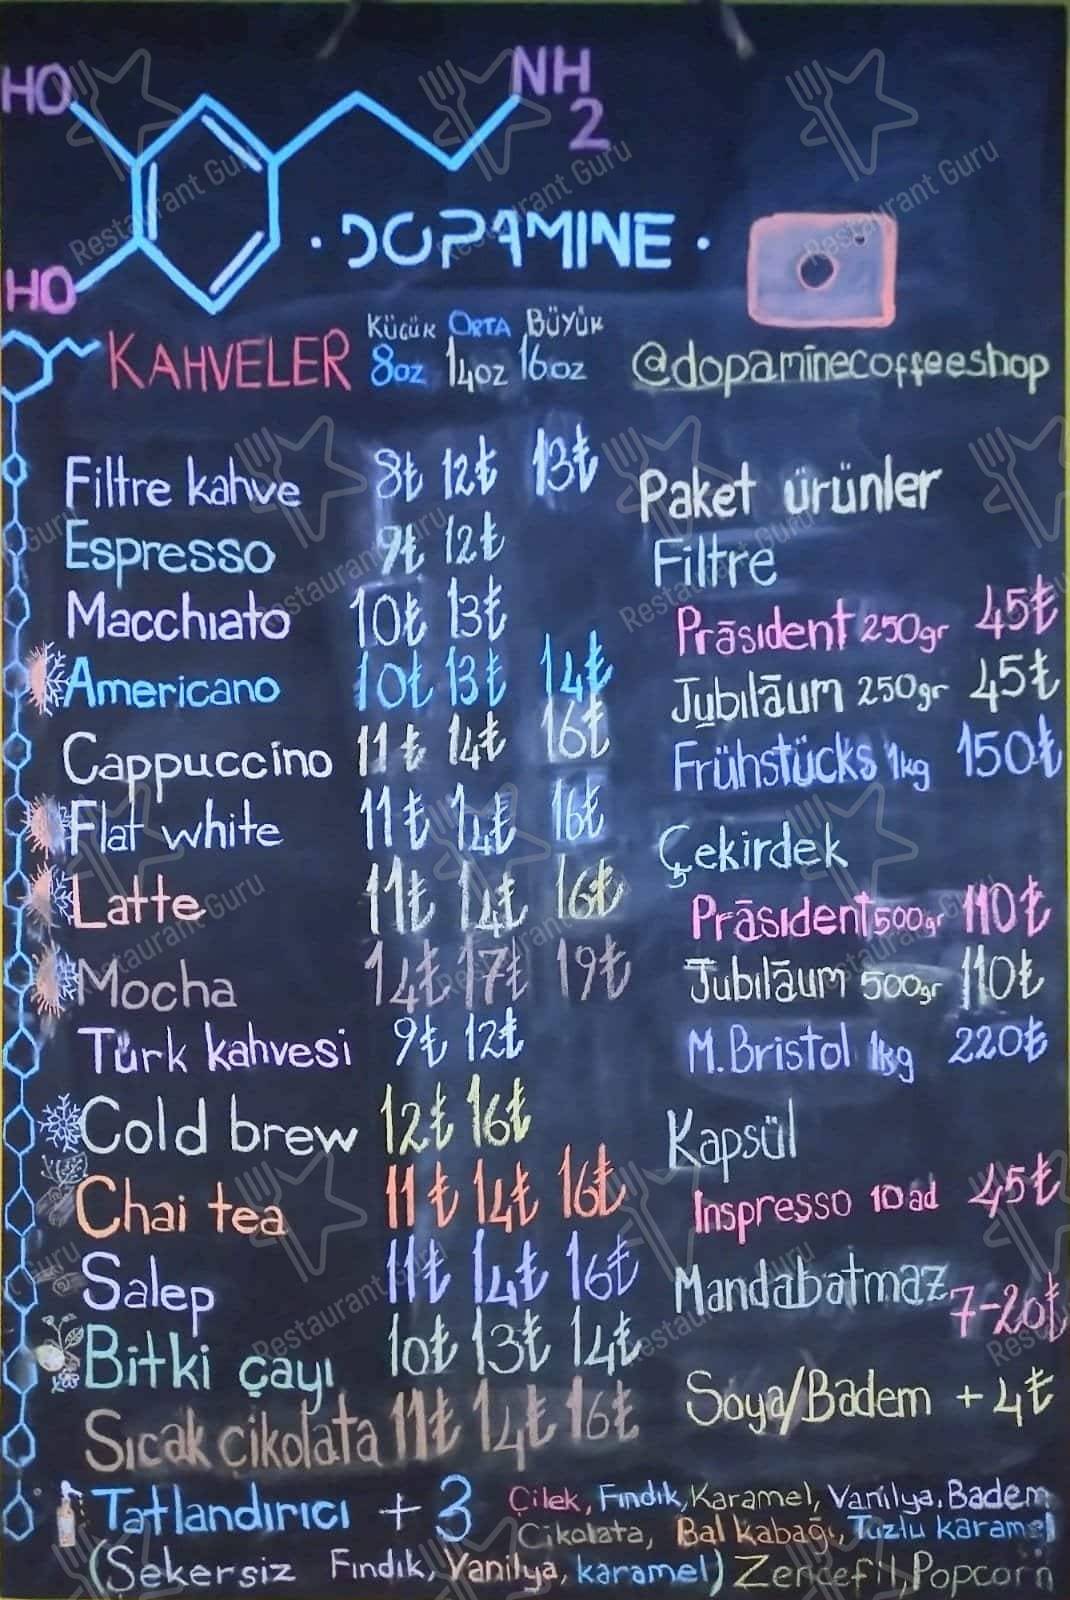 HO NH2
HO
·DOPAMINE·
KAHVELER
Küçük Orta Büyük
8oz 14oz 16oz
@dopaminecoffeeshop
Filtre kahve 8₺ 12₺ 13₺
Espresso 9₺ 12₺
Macchiato 10₺ 13₺
Americano 10₺ 13₺ 14₺
Cappuccino 11₺ 14₺ 16₺
Flat white 11₺ 14₺ 16₺
Latte 11₺ 14₺ 16₺
Mocha 14₺ 17₺ 19₺
Türk kahvesi 9₺ 12₺
Cold brew 12₺ 16₺
Chai tea 11₺ 14₺ 16₺
Salep 11₺ 14₺ 16₺
Bitki çayı 10₺ 13₺ 14₺
Sıcak çikolata 11₺ 14₺ 16₺
Paket ürünler
Filtre
Präsident 250gr 45₺
Jubıläum 250gr 45₺
Frühstücks 1kg 150₺
Çekirdek
Präsıdent 500gr 110₺
Jubıläum 500gr 110₺
M.Bristol 1kg 220₺
Kapsül
Inspresso 10ad 45₺
Mandabatmaz 7-20₺
Soya/Badem +4₺
Tatlandırıcı +3 Çilek, Fındık, Karamel, Vanilya, Badem
Çikolata, Bal kabağı, Tuzlu karamel
(Şekersiz Fındık, Vanilya, karamel) Zencefil, Popcorn
Restaurant Guru